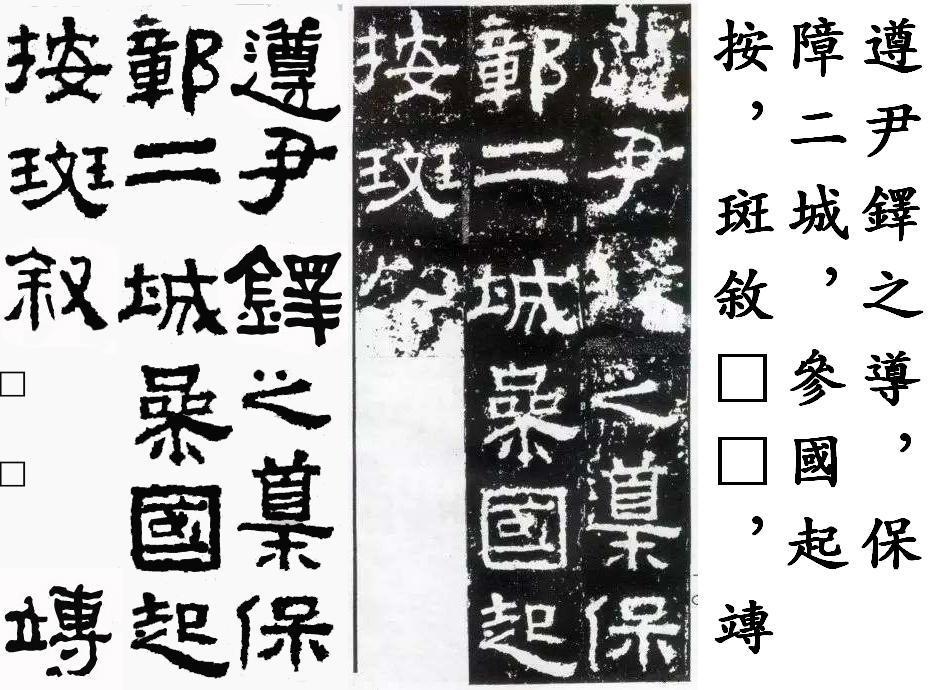 遵尹鐸之導，保
障二城，參國起
按，斑敘□□，竱
尹之保
鄣二城參國起
按斑
遵尹鐸之保
鄣二城參國起
按斑叙□□竱